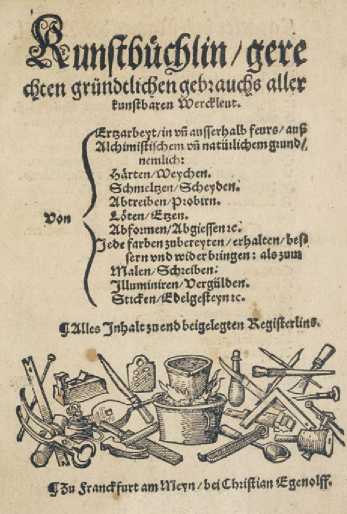 Kunstbüchlin/gere
chten gründtlichen gebrauchs aller
kunstbaren Werckleut.
Von
Ertzarbeyt/in vñ ausserhalb feurs/auß
Alchimistischem vñ natürlichem grund/
nemlich:
Härten/Weychen.
Schmeltzen/Scheyden.
Abtreiben/Probirn.
Löten/Etzen.
Abformen/Abgiessen ꝛc.
Jede farben zubereyten/erhalten/bess
sern vnd widerbringen: als zum
Malen/Schreiben:
Illuminiren/Vergülden.
Sticken/Edelgesteyn ꝛc.
¶Alles Inhalt zu end beigelegten Registerlins.
¶Zu Franckfurt am Meyn/bei Christian Egenolff.